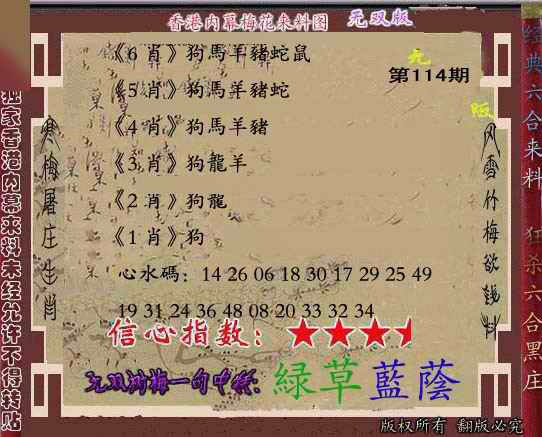 香港内幕梅花来料图 无双版
《6 肖》狗馬羊豬蛇鼠
无
第114期
《5 肖》狗馬羊豬蛇
版
《4 肖》狗馬羊豬
《3 肖》狗龍羊
《2 肖》狗龍
《1 肖》狗
心水碼：14 26 06 18 30 17 29 25 49
19 31 24 36 48 08 20 33 32 34
信心指数：★★★
一句中特：綠草藍蔭
版权所有 翻版必究
独家香港内幕来料未经允许不得转贴
寒梅屠庄生肖
风雪竹梅欲钱料
经典六合来料 狂杀六合黑庄